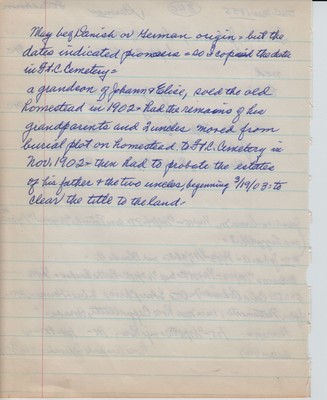 May be Danish or German origin - but the
dates indicated pioneers - so I copied the data
in F.H.C. Cemetery -
a grandson of Johann & Elise, sold the old
homestead in 1902 - had the remains of his
grandparents and 2 uncles moved from
burial plot on homestead to F.H.C. Cemetery in
Nov. 1902 - then had to probate the estates
of his father & the two uncles, beginning 3/19/03 - to
clear the title to the land -